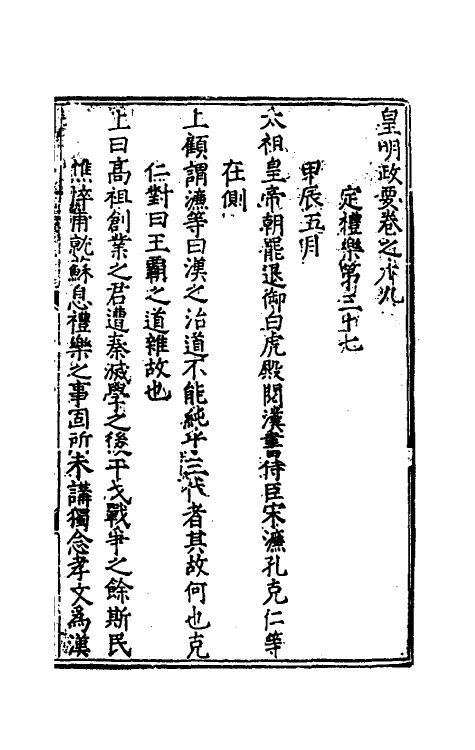 皇明政要卷之十九
定禮樂第三十七
甲辰五月
太祖皇帝朝罷退御白虎殿閱漢書侍臣宋濂孔克仁等
在側
上顧謂濂等曰漢之治道不能純乎三代者其故何也克
仁對曰王霸之道雜故也
上曰高祖創業之君遭秦滅學之後干戈戰爭之餘斯民
憔悴甫就蘇息禮樂之事固所未講獨念孝文爲漢